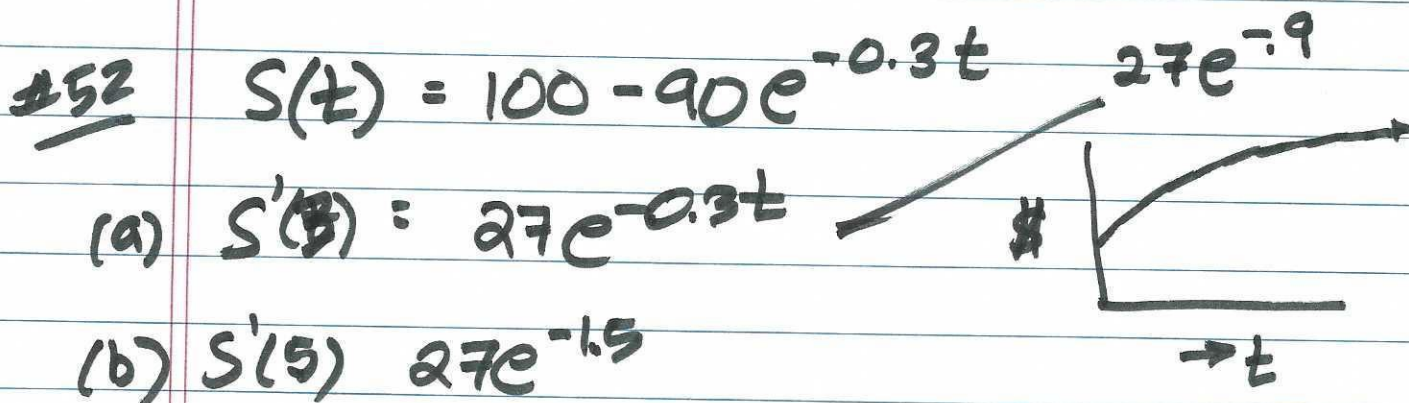 #52 S(t) = 100 - 90e^-0.3t 27e^-.9
(a) S'( ) = 27e^-0.3t
$
(b) S'(5) 27e^-1.5
→ t